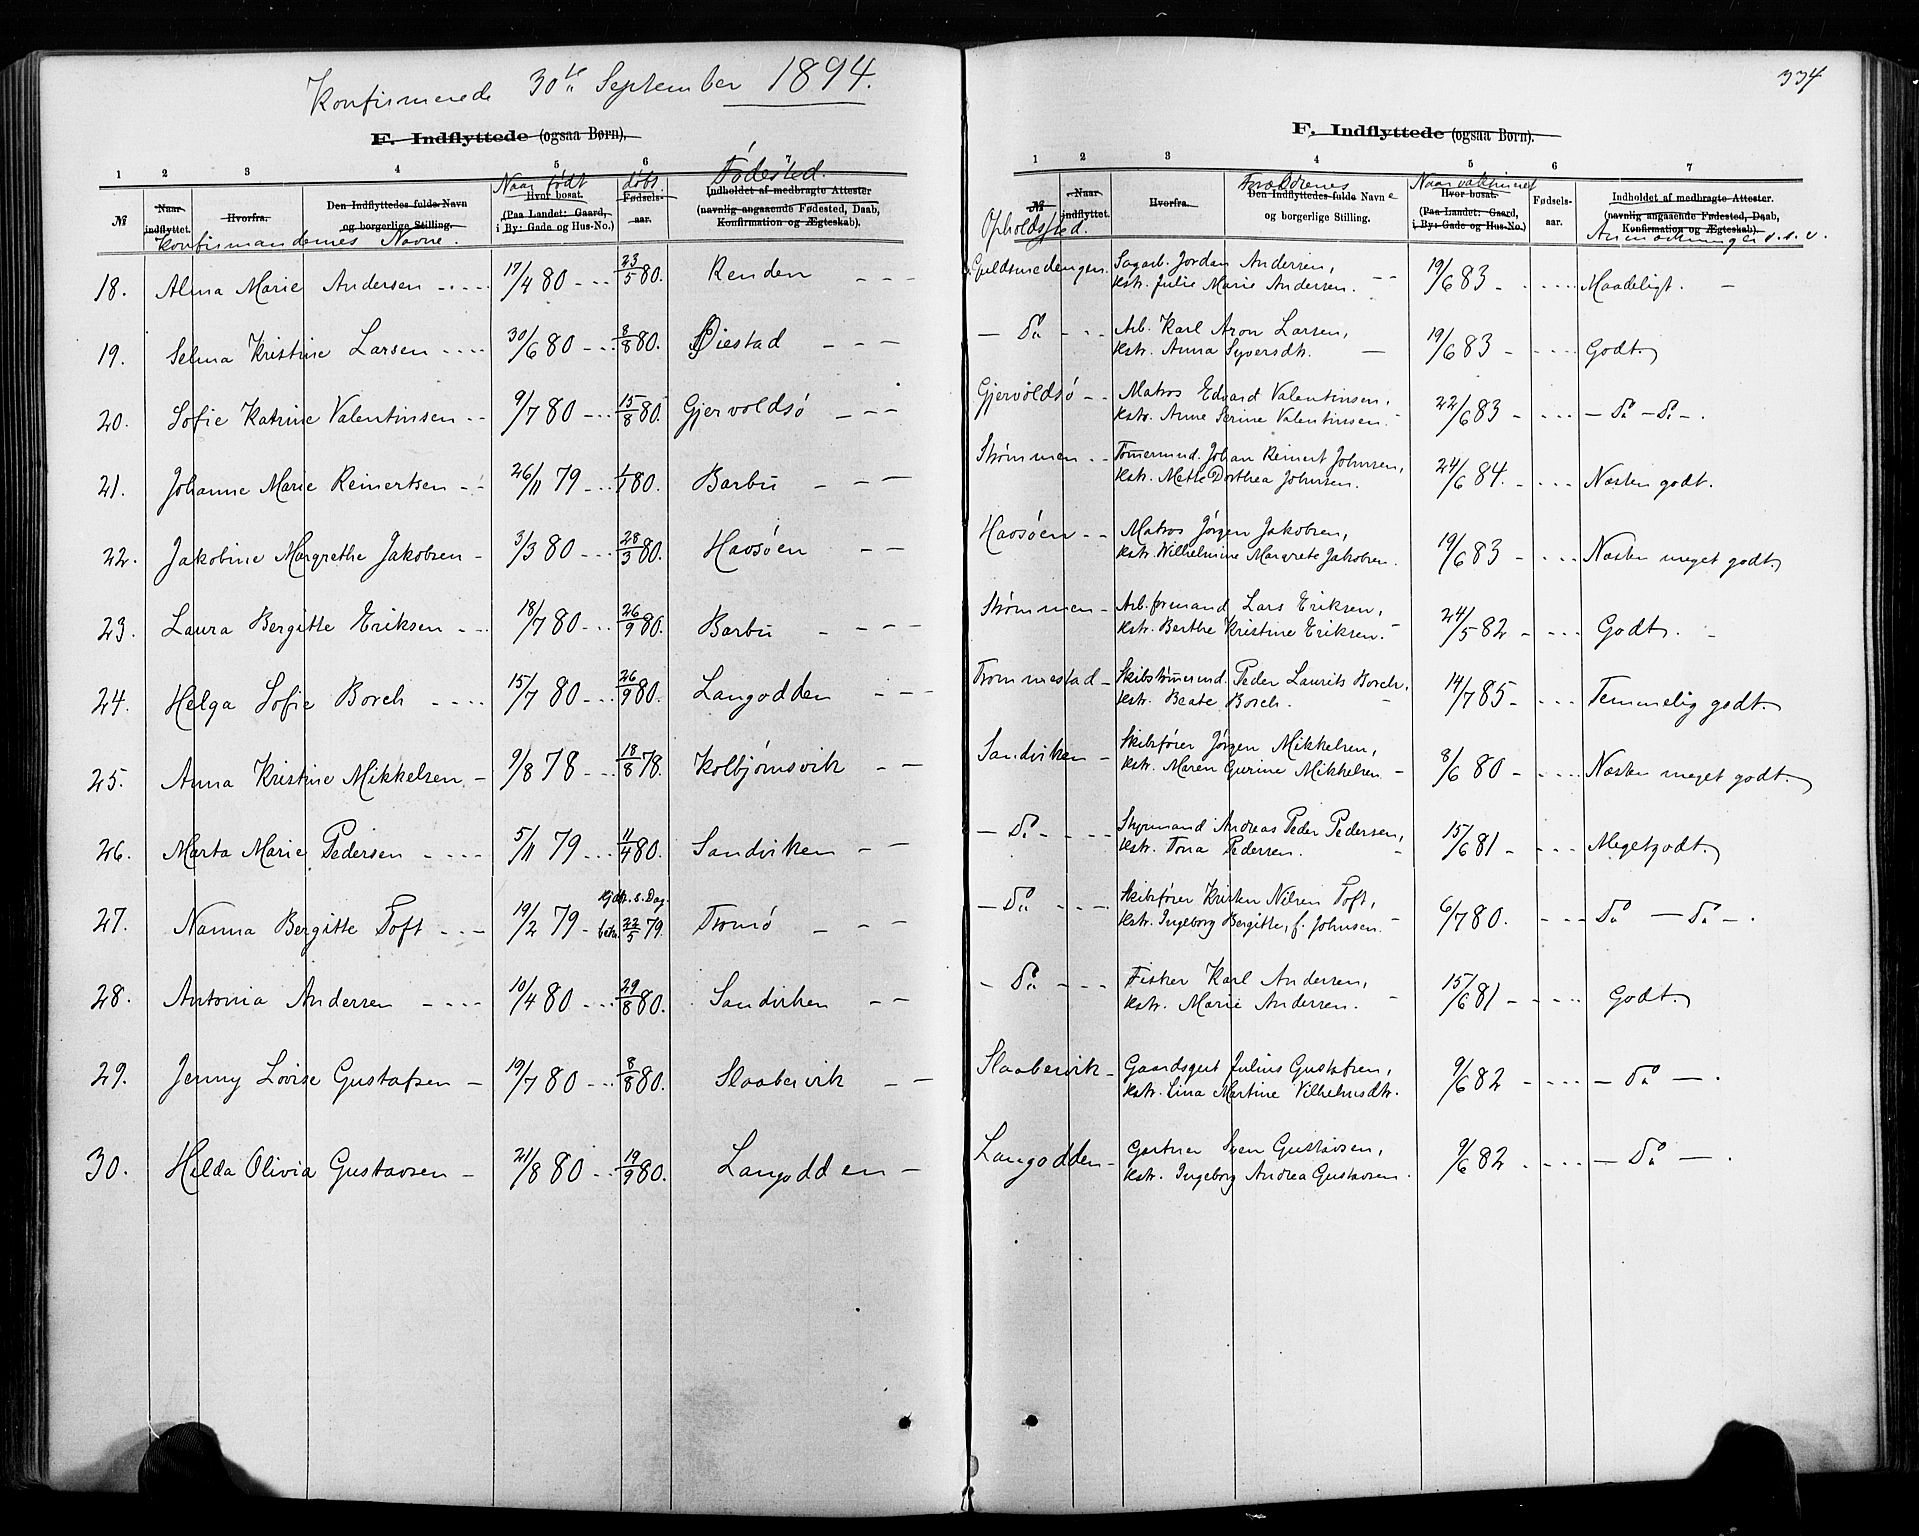 Konfirmerede 30te September 1894.
F. Indflyttede (ogsaa Børn).
1 2 3 4 5 6 7
Naar født døbt. Fødested.
№ Naar indflyttet. Hvorfra. Den Indflyttedes fulde Navn og borgerlige Stilling. Hvor bosat. (Paa Landet: Gaard, i By: Gade og Hus-No.) Fødselsaar. Indholdet af medbragte Attester (navnlig angaaende Fødested, Daab, Konfirmation og Ægteskab).
Konfirmandernes Navne.
18. Alma Marie Andersen 17/4 80 23/5 80. Renden
19. Selma Kristine Larsen 30/6 80 8/8 80. Øiestad
20. Sofie Katrine Valentinsen 9/7 80 15/8 80. Gjervoldsø
21. Johanne Marie Reinertsen 26/11 79 1/1 80. Barbu
22. Jakobine Margrethe Jakobsen 3/3 80 28/3 80. Havsøen
23. Laura Bergitte Eriksen 18/7 80 26/9 80. Barbu
24. Helga Sofie Borch 15/7 80 26/9 80. Langodden
25. Anna Kristine Mikkelsen 9/8 78 18/8 78. Kolbjørnsvik
26. Marta Marie Pedersen 5/11 79 11/4 80. Sandviken
27. Nanna Bergitte Toft 19/2 79 hjdbt. s. Dag. 22/5 79. Tromø
28. Antonia Andersen 10/4 80 29/8 80. Sandviken
29. Jenny Lovise Gustafsen 19/7 80 8/8 80. Slaabervik
30. Hilda Olivia Gustavsen 21/8 80 19/9 80. Langodden
334
F. Indflyttede (ogsaa Børn).
1 2 3 4 5 6 7
Forældrenes Naar vakcineret
№ Naar indflyttet. Hvorfra. Den Indflyttedes fulde Navne og borgerlige Stilling. Hvor bosat. (Paa Landet: Gaard, i By: Gade og Hus-No.) Fødselsaar. Indholdet af medbragte Attester. (navnlig angaaende Fødested, Daab, Konfirmation og Ægteskab).
Opholdssted. Anmærkninger o.s.v.
Guldsmedengen. Sagarb. Jordan Andersen, 19/6 83 Maadeligt.
Kstr. Julie Marie Andersen.
Do Arb. Karl Aron Larsen, 19/6 83 Godt.
Kstr. Anna Syversdtr.
Gjervoldsø Matros Edvard Valentinsen, 22/6 83 Do Do
Kstr. Anne Serine Valentinsen.
Strømmen Tømermd. Johan Reinert Johnsen, 24/6 84. Næsten godt.
Kstr. Mette Dorthea Johnsen.
Havsøen Matros Jørgen Jakobsen, 19/6 83 Næsten meget godt.
Kstr. Wilhelmine Margrete Jakobsen.
Strømmen Arb.formand Lars Eriksen, 24/5 82 Godt.
Kstr. Berthe Kristine Eriksen.
Trommestad Skibstømermd. Peder Laurits Borch, 14/7 85 Temmelig godt.
Kstr. Beate Borch.
Sandviken Skibsfører Jørgen Mikkelsen, 8/6 80 Næsten meget godt.
Kstr. Maren Gurine Mikkelsen
Do Styrmand Andreas Peder Pedersen, 15/6 81 Meget godt.
Kstr. Tona Pedersen.
Do Skibsfører Kristen Nilsen Toft, 6/7 80. Do Do
Kstr. Ingeborg Bergitte, f. Johnsen.
Do Fisker Karl Andersen, 15/6 81 Godt.
Kstr. Marie Andersen.
Slaabervik Gaardsgut Julius Gustafsen, 9/6 82 Do
Kstr. Lina Martine Vilhelmsdtr.
Langodden Gartner Sven Gustavsen, 9/6 82 Do
Kstr. Ingeborg Andrea Gustavsen.